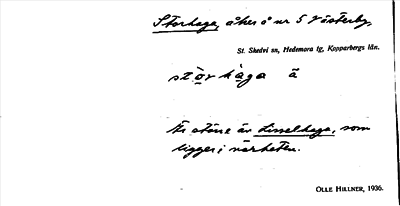 Storhaga, åker å nr 5 Västerby,
St. Skedvi sn, Hedemora tg, Kopparbergs län.
stòrhàga ā
Är större än Lisselhaga, som
ligger i närheten.
OLLE HILLNER, 1936.